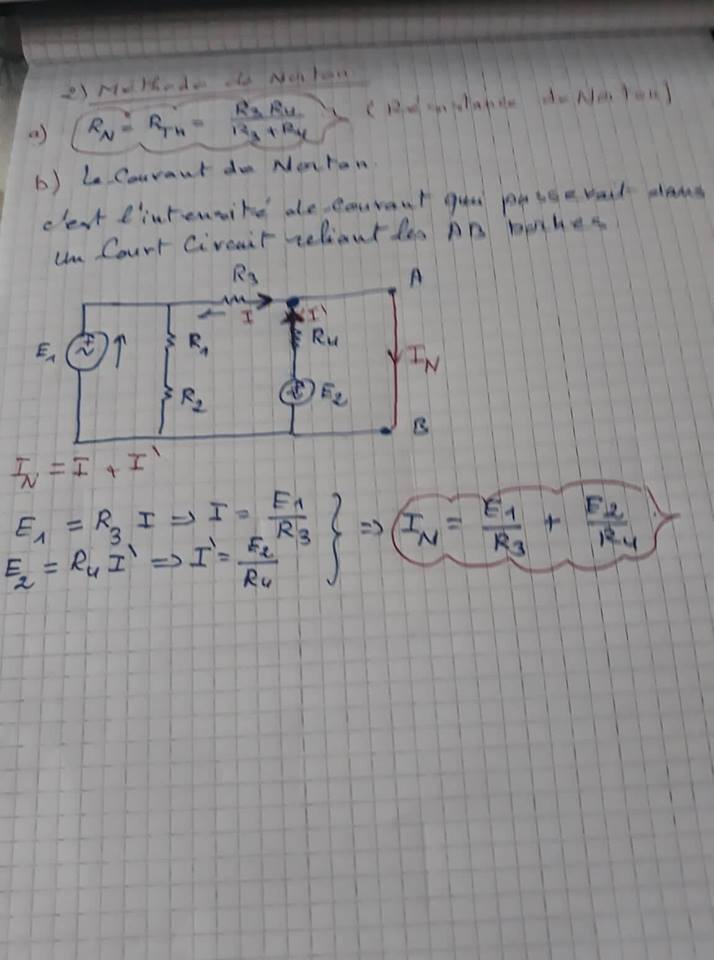 2) Méthode de Norton
a) RN = RTH = R3 R4 / R3 + R4 (Résistance de Norton)
b) Le Courant de Norton.
c'est l'intensité de courant qui passerait dans
un Court Circuit reliant les AB bornes
R3
A
I
I'
E1
R1
R4
IN
R2
E2
B
IN = I + I'
E1 = R3 I ⇒ I = E1/R3
E2 = R4 I' ⇒ I' = E2/R4
} ⇒ IN = E1/R3 + E2/R4